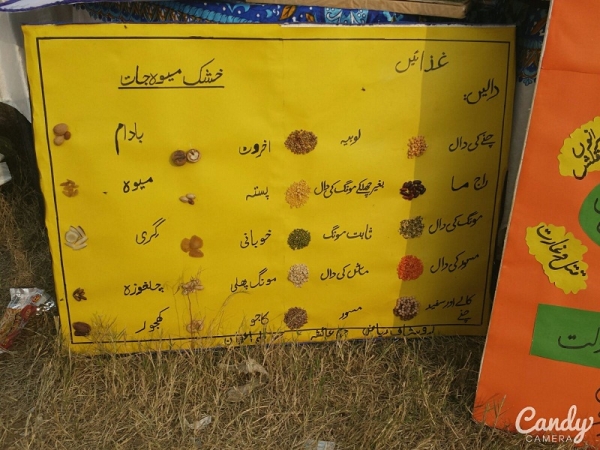 غذائیں
دالیں:
چنے کی دال
لوبیہ
راج ما
بغیر چھلکے مونگ کی دال
مونگ کی دال
ثابت مونگ
مسور کی دال
ماش کی دال
کالے اور سفید چنے
مسور
خشک میوہ جات
اخروٹ
بادام
پستہ
میوہ
خوبانی
گری
مونگ پھلی
چلغوزہ
کاجو
کھجور
قتل و غارت
Candy
CAMERA